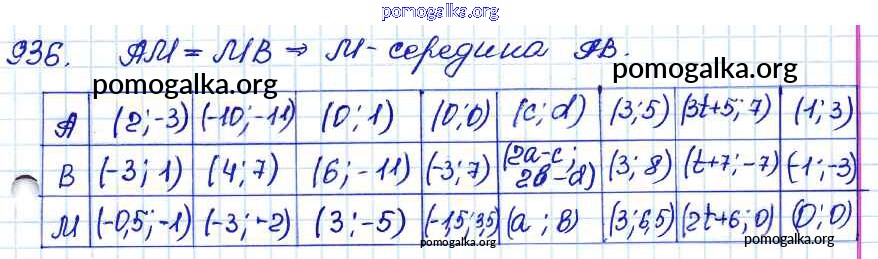 pomogalka.org
936. AM = MB ⇒ M - середина AB.
pomogalka.org pomogalka.org
A (2;-3) (-10;-11) (0;1) (0;0) (c;d) (3;5) (3t+5;7) (1;3)
B (-3;1) (4;7) (6;-11) (-3;7) (2a-c; 2b-d) (3;8) (t+7;-7) (-1;-3)
M (-0,5;-1) (-3;-2) (3;-5) (-1,5;3,5) (a;b) (3;6,5) (2t+6;0) (0;0)
pomogalka.org pomogalka.org